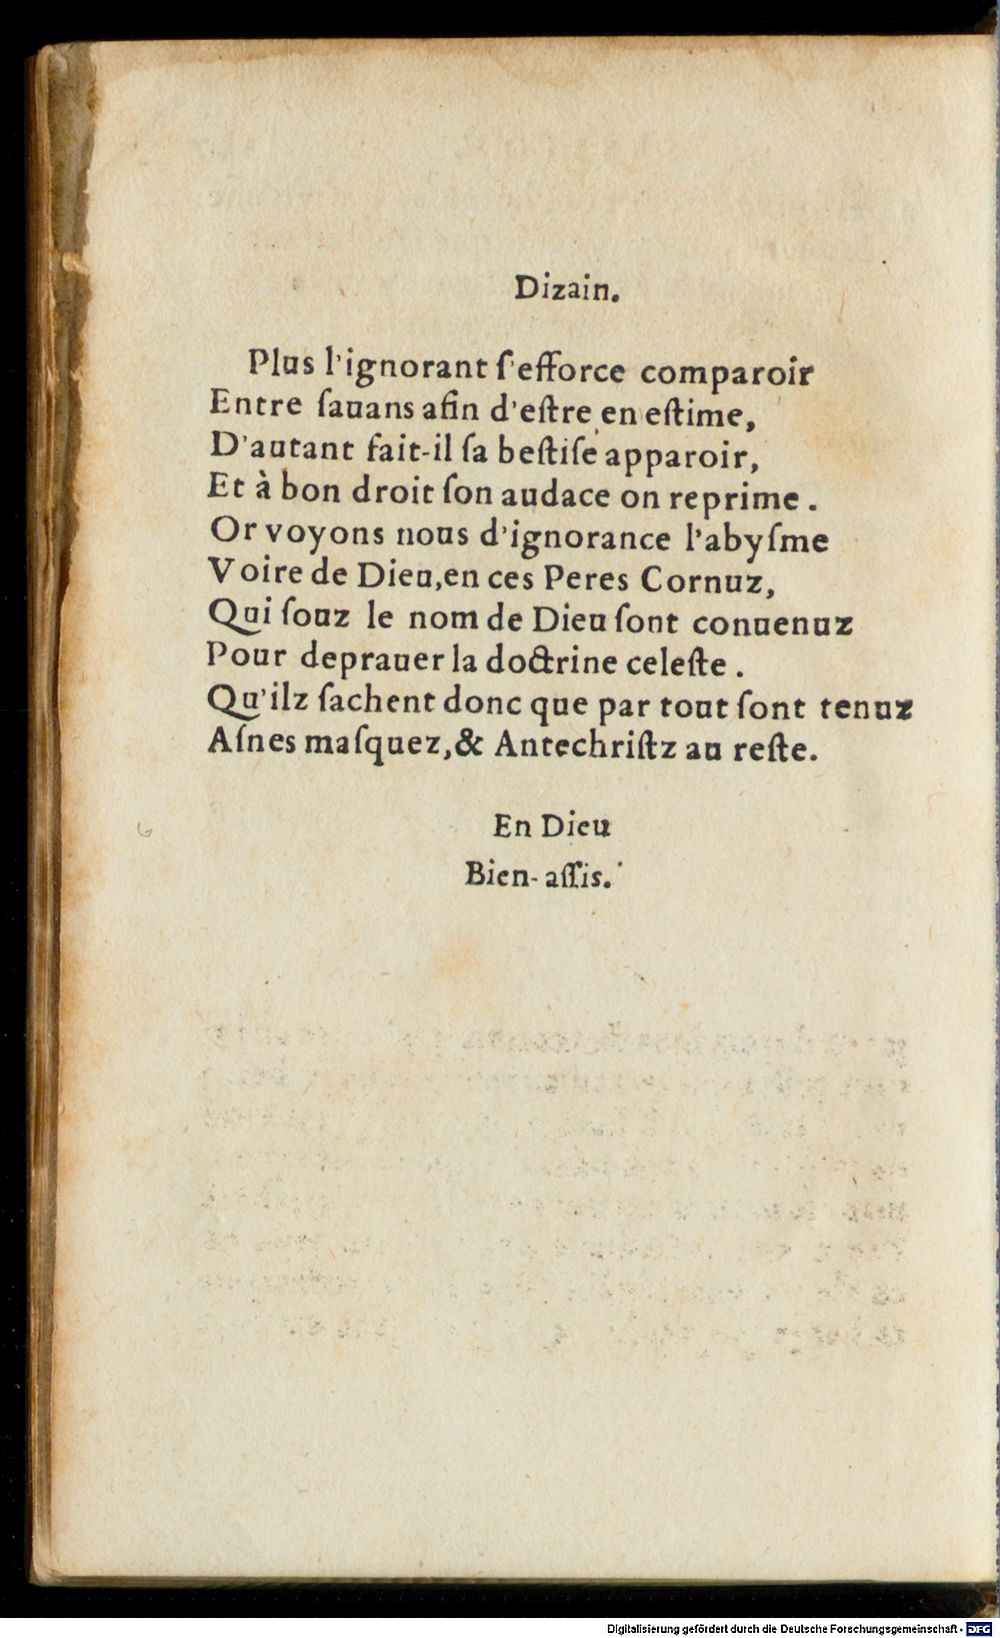 Dizain.
Plus l'ignorant ſ'efforce comparoir
Entre ſauans afin d'eſtre en eſtime,
D'autant fait-il ſa beſtiſe apparoir,
Et à bon droit ſon audace on reprime.
Or voyons nous d'ignorance l'abyſme
Voire de Dieu, en ces Peres Cornuz,
Qui ſouz le nom de Dieu ſont conuenuz
Pour deprauer la doctrine celeſte.
Qu'ilz ſachent donc que par tout ſont tenuz
Aſnes maſquez, & Antechriſtz au reſte.
En Dieu
Bien-aſſis.
Digitalisierung gefördert durch die Deutsche Forschungsgemeinschaft - DFG